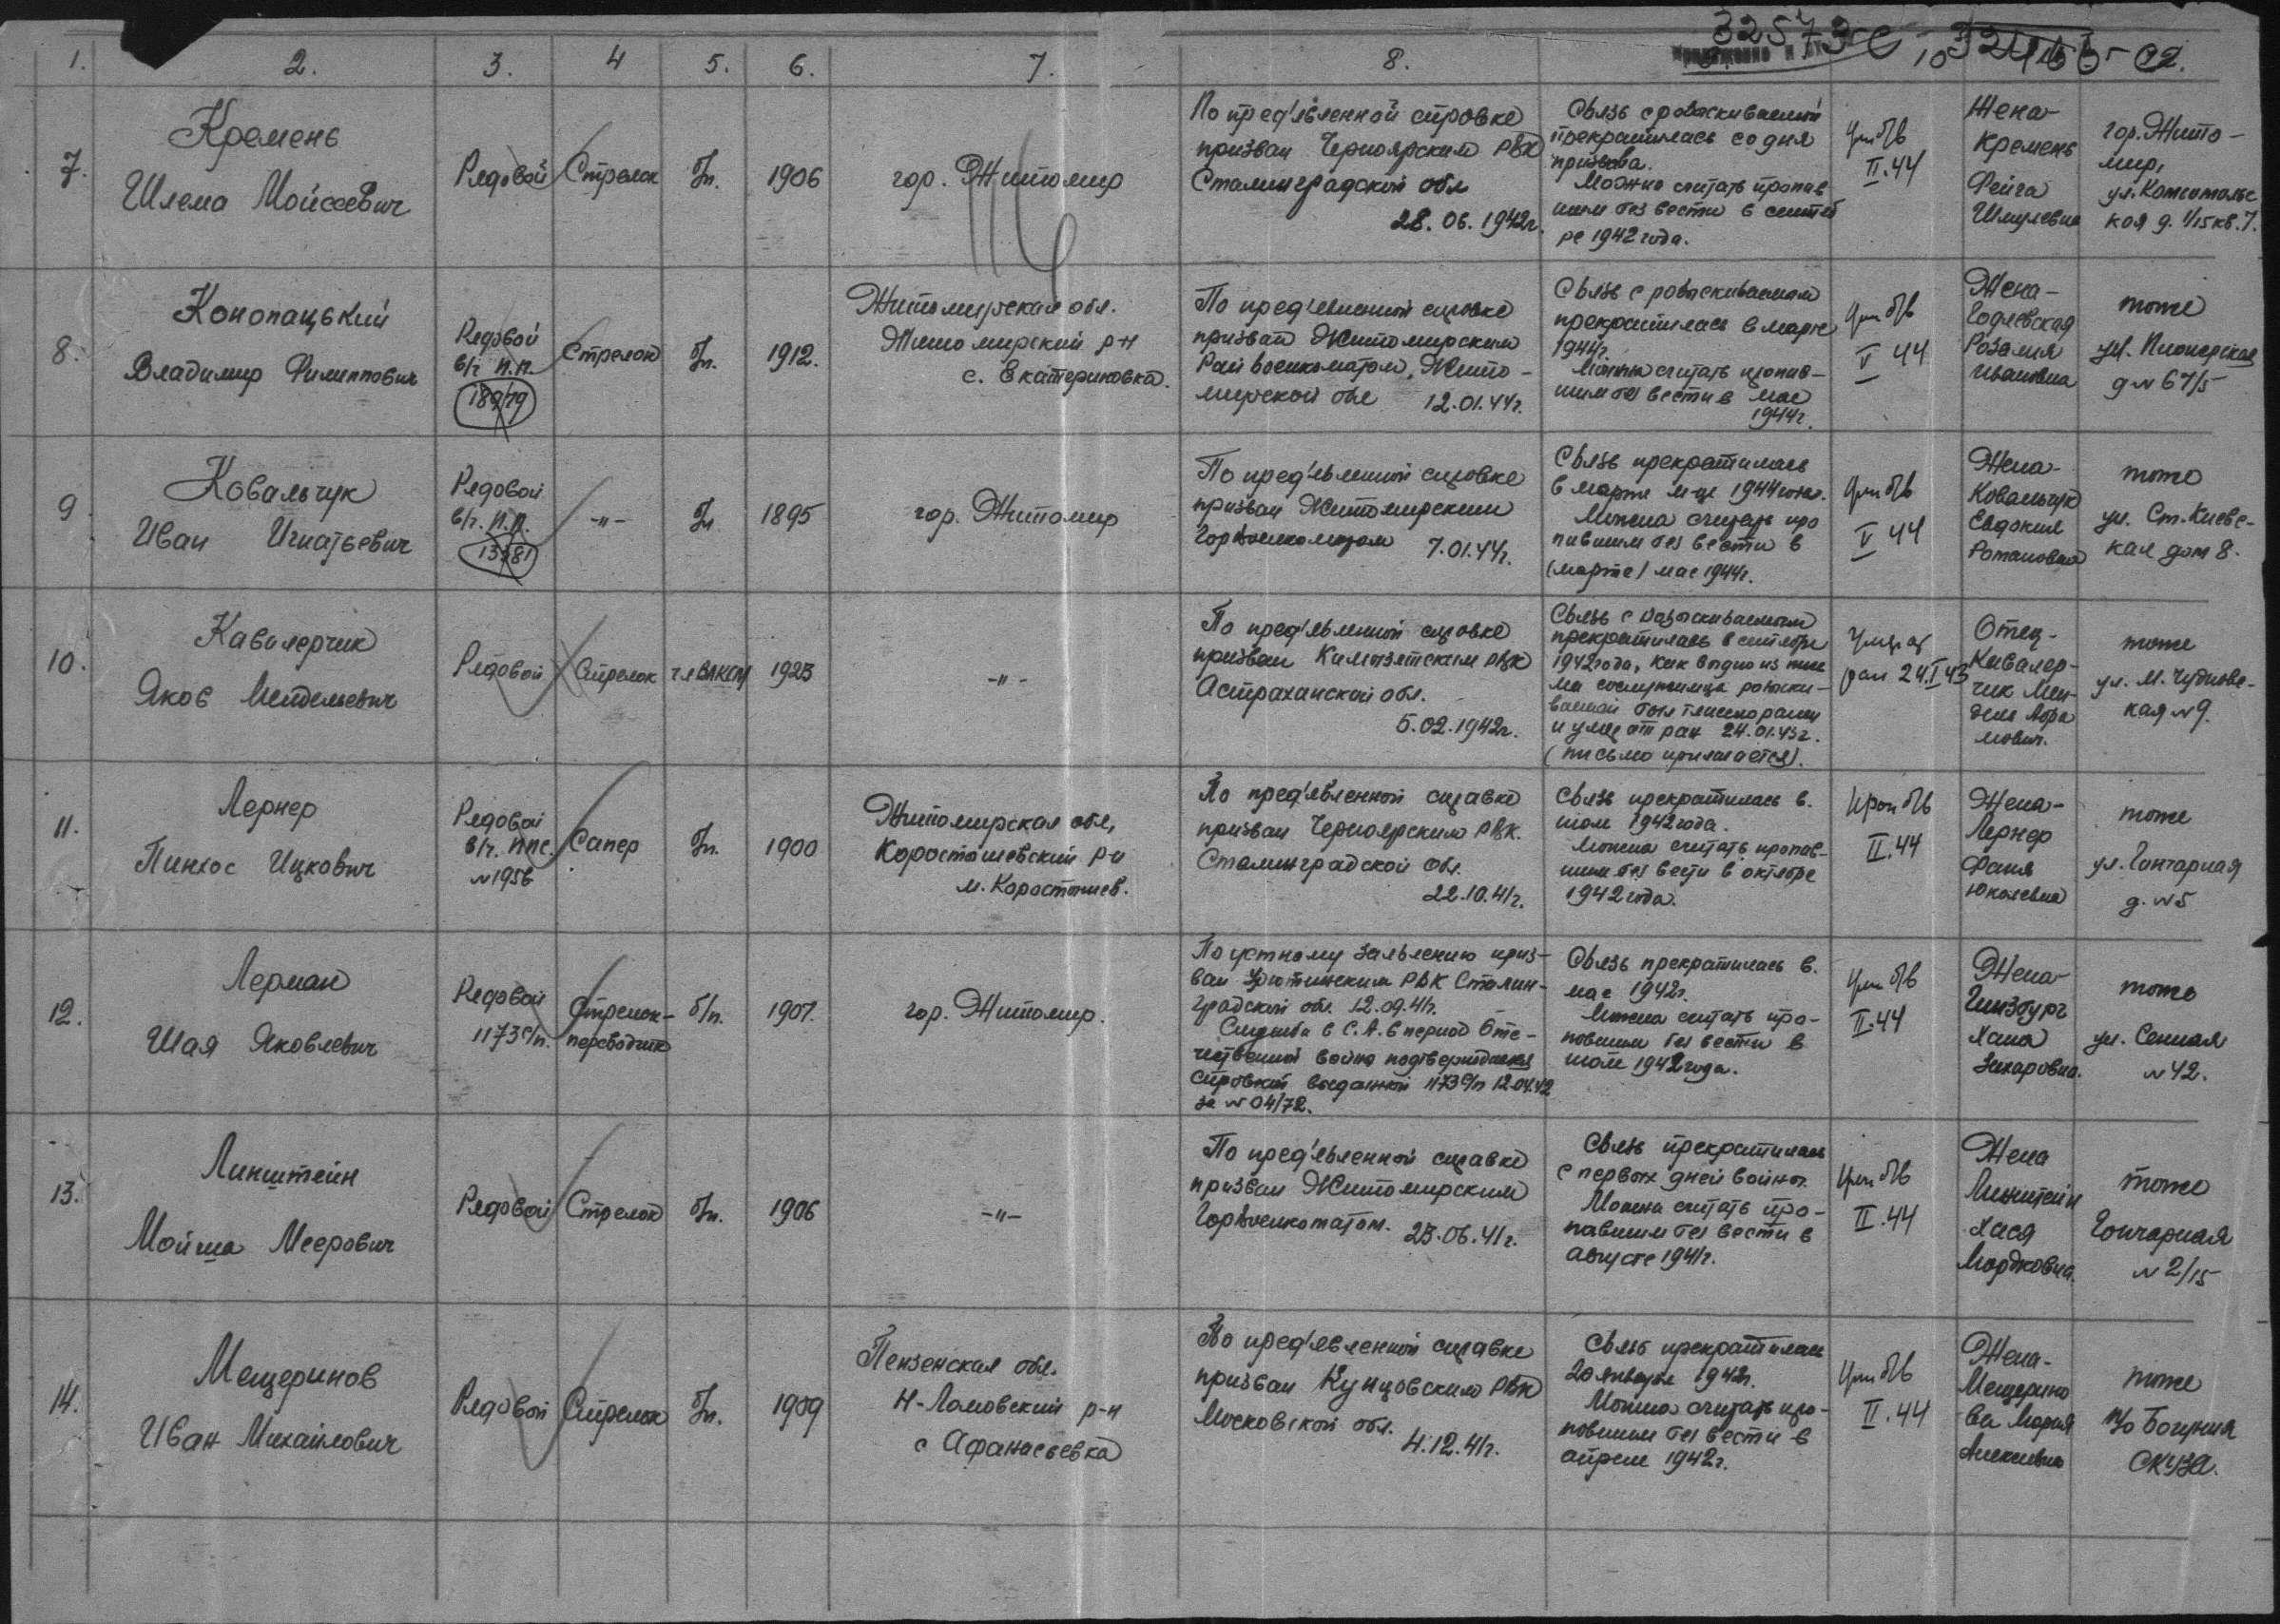 32573с
1. 2. 3. 4 5. 6. 7. 8.
7.
Кремень
Шлема Мойсеевич
Рядовой
Стрелок
б/п.
1906
гор. Житомир
По пред'явленной справке
призван Черноярским РВК
Сталинградской обл
28.06.1942г.
Связь с розыскиваемым
прекратилась со дня
призыва.
Можно считать пропав
шим без вести в сентяб
ре 1942 года.
II.44
Жена-
Кремень
Фейга
Шмулевна
гор. Жито-
мир,
ул. Комсомольс
кая д. 1/15 кв. 7.
8.
Конопацький
Владимир Филиппович
Рядовой
в/ч п.п.
18979
Стрелок
б/п.
1912.
Житомирская обл.
Житомирский р-н
с. Екатериновка.
По пред'явленной справке
призван Житомирским
Райвоенкоматом, Жито-
мирской обл 12.01.44г.
Связь с розыскиваемым
прекратилась в марте
1944г.
Можно считать пропав-
шим без вести в мае
1944г.
V 44
Жена-
Годлевская
Розалия
Ивановна
тоже
ул. Пионерская
д № 67/5
9
Ковальчук
Иван Игнатьевич
Рядовой
в/ч. п.п.
13581
-"-
б/п
1895
гор. Житомир
По пред'явленной справке
призван Житомирским
Горвоенкоматом 7.01.44г.
Связь прекратилась
в марте м-це 1944 года.
Можна считать про
павшим без вести в
(марте) мае 1944г.
V 44
Жена-
Ковальчук
Евдокия
Романовна
тоже
ул. Ст. Киевс-
кая дом 8.
10.
Кавалерчик
Яков Менделевич
Рядовой
Стрелок
чл ВЛКСМ
1923
-"-
По пред'явленной справке
призван РВК
Астраханской обл.
5.02.1942г.
Связь с разыскиваемым
прекратилась в сентябре
1942 года, как видно из пись
ма сослуживца розыски-
ваемый был тяжело ранен
и умер от ран 24.01.43г.
(письмо прилагается).
Умер от
ран 24.I.43
Отец-
Кавалер-
чик Мен-
дель Абра
мович.
тоже
ул. М. Чудновс-
кая № 9.
11.
Лернер
Пинхос Ицкович
Рядовой
в/ч. ППС
№ 1956
Сапер
б/п.
1900
Житомирская обл,
Коростошевский р-н
м. Коростышев.
По пред'явленной справке
призван Черноярским РВК.
Сталинградской обл.
22.10.41г.
Связь прекратилась в.
июле 1942 года.
Можна считать пропав-
шим без вести в октябре
1942 года.
II.44
Жена-
Лернер
Фаня
тоже
ул. Гончарная
д. № 5
12.
Лерман
Шая Яковлевич
Рядовой
1173 с/п.
Стрелок-
переводчик
б/п.
1907.
гор. Житомир.
По устному заявлению приз-
ван РВК Сталин-
градской обл. 12.09.41г.
Служба в С.А. в период Оте-
чественной войны подтверждается
справкой выданной 1173 с/п 12.04.42
за № 04/72.
Связь прекратилась в.
мае 1942г.
Можна считать про-
павшим без вести в
июле 1942 года.
II.44
Жена-
Гинзбург
Хана
Захаровна.
тоже
ул. Сенная
№ 42.
13.
Линштейн
Мойша Меерович
Рядовой
Стрелок
б/п.
1906
-"-
По пред'явленной справке
призван Житомирским
Горвоенкоматом. 23.06.41г.
Связь прекратилась
с первых дней войны.
Можна считать про-
павшим без вести в
августе 1941г.
II.44
Жена
Линштейн
Хася
Мордковна.
тоже
Гончарная
№ 2/15
14.
Мещеринов
Иван Михайлович
Рядовой
Стрелок
б/п.
1909
Пензенская обл.
Н-Ломовский р-н
с Афанасьевка
По пред'явленной справке
призван Кунцовским РВК
Московской обл.
4.12.41г.
Связь прекратилась
20 января 1942г.
Можна считать про-
павшим без вести в
апреле 1942г.
II.44
Жена-
Мещерино
ва Мария
Алексеевна
тоже
п/о Богуния